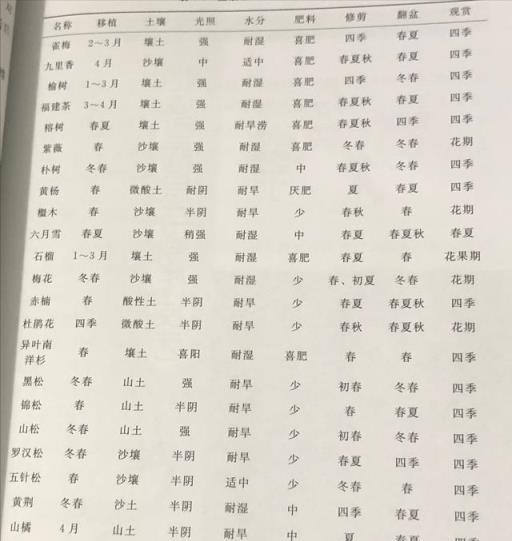 名称 移植 土壤 光照 水分 肥料 修剪 翻盆 观赏
雀梅 2～3月 壤土 强 耐湿 喜肥 四季 春夏 四季
九里香 4月 沙壤 中 适中 喜肥 春夏秋 春夏 四季
榆树 1～3月 壤土 强 耐湿 喜肥 四季 冬春 四季
福建茶 3～4月 壤土 强 耐湿 喜肥 春夏秋 春夏 四季
榕树 春夏 壤土 强 耐旱涝 喜肥 春夏秋 四季 四季
紫薇 春 沙壤 强 耐湿 喜肥 冬春 冬春 花期
朴树 冬春 沙壤 强 耐湿 中 春夏秋 冬春 四季
黄杨 春 微酸土 耐阴 耐旱 厌肥 夏 春夏 四季
檵木 春 沙壤 半阴 耐旱 少 春秋 春 花期
六月雪 春夏 沙壤 稍强 耐湿 中 春夏 春夏秋 春夏
石榴 1～3月 壤土 强 耐湿 喜肥 春夏 春 花果期
梅花 冬春 沙壤 强 耐湿 少 春、初夏 冬春 花期
赤楠 春 酸性土 半阴 耐旱 少 春夏 春夏秋 四季
杜鹃花 四季 微酸土 半阴 耐旱 少 春秋 春夏秋 花期
异叶南
洋杉 春 壤土 喜阳 耐湿 喜肥 春 春 四季
黑松 冬春 山土 强 耐旱 少 初春 冬春 四季
锦松 春 山土 半阴 耐旱 少 春 春夏 四季
山松 冬春 山土 强 耐旱 少 初春 冬春 四季
罗汉松 冬春 沙壤 半阴 耐旱 少 春夏 四季 四季
五针松 春 沙壤 半阴 适中 少 冬春 春 四季
黄荆 冬春 沙土 半阴 耐湿 中 四季 春夏 四季
山橘 4月 山土 半阴 耐旱 中 夏 春夏 四季